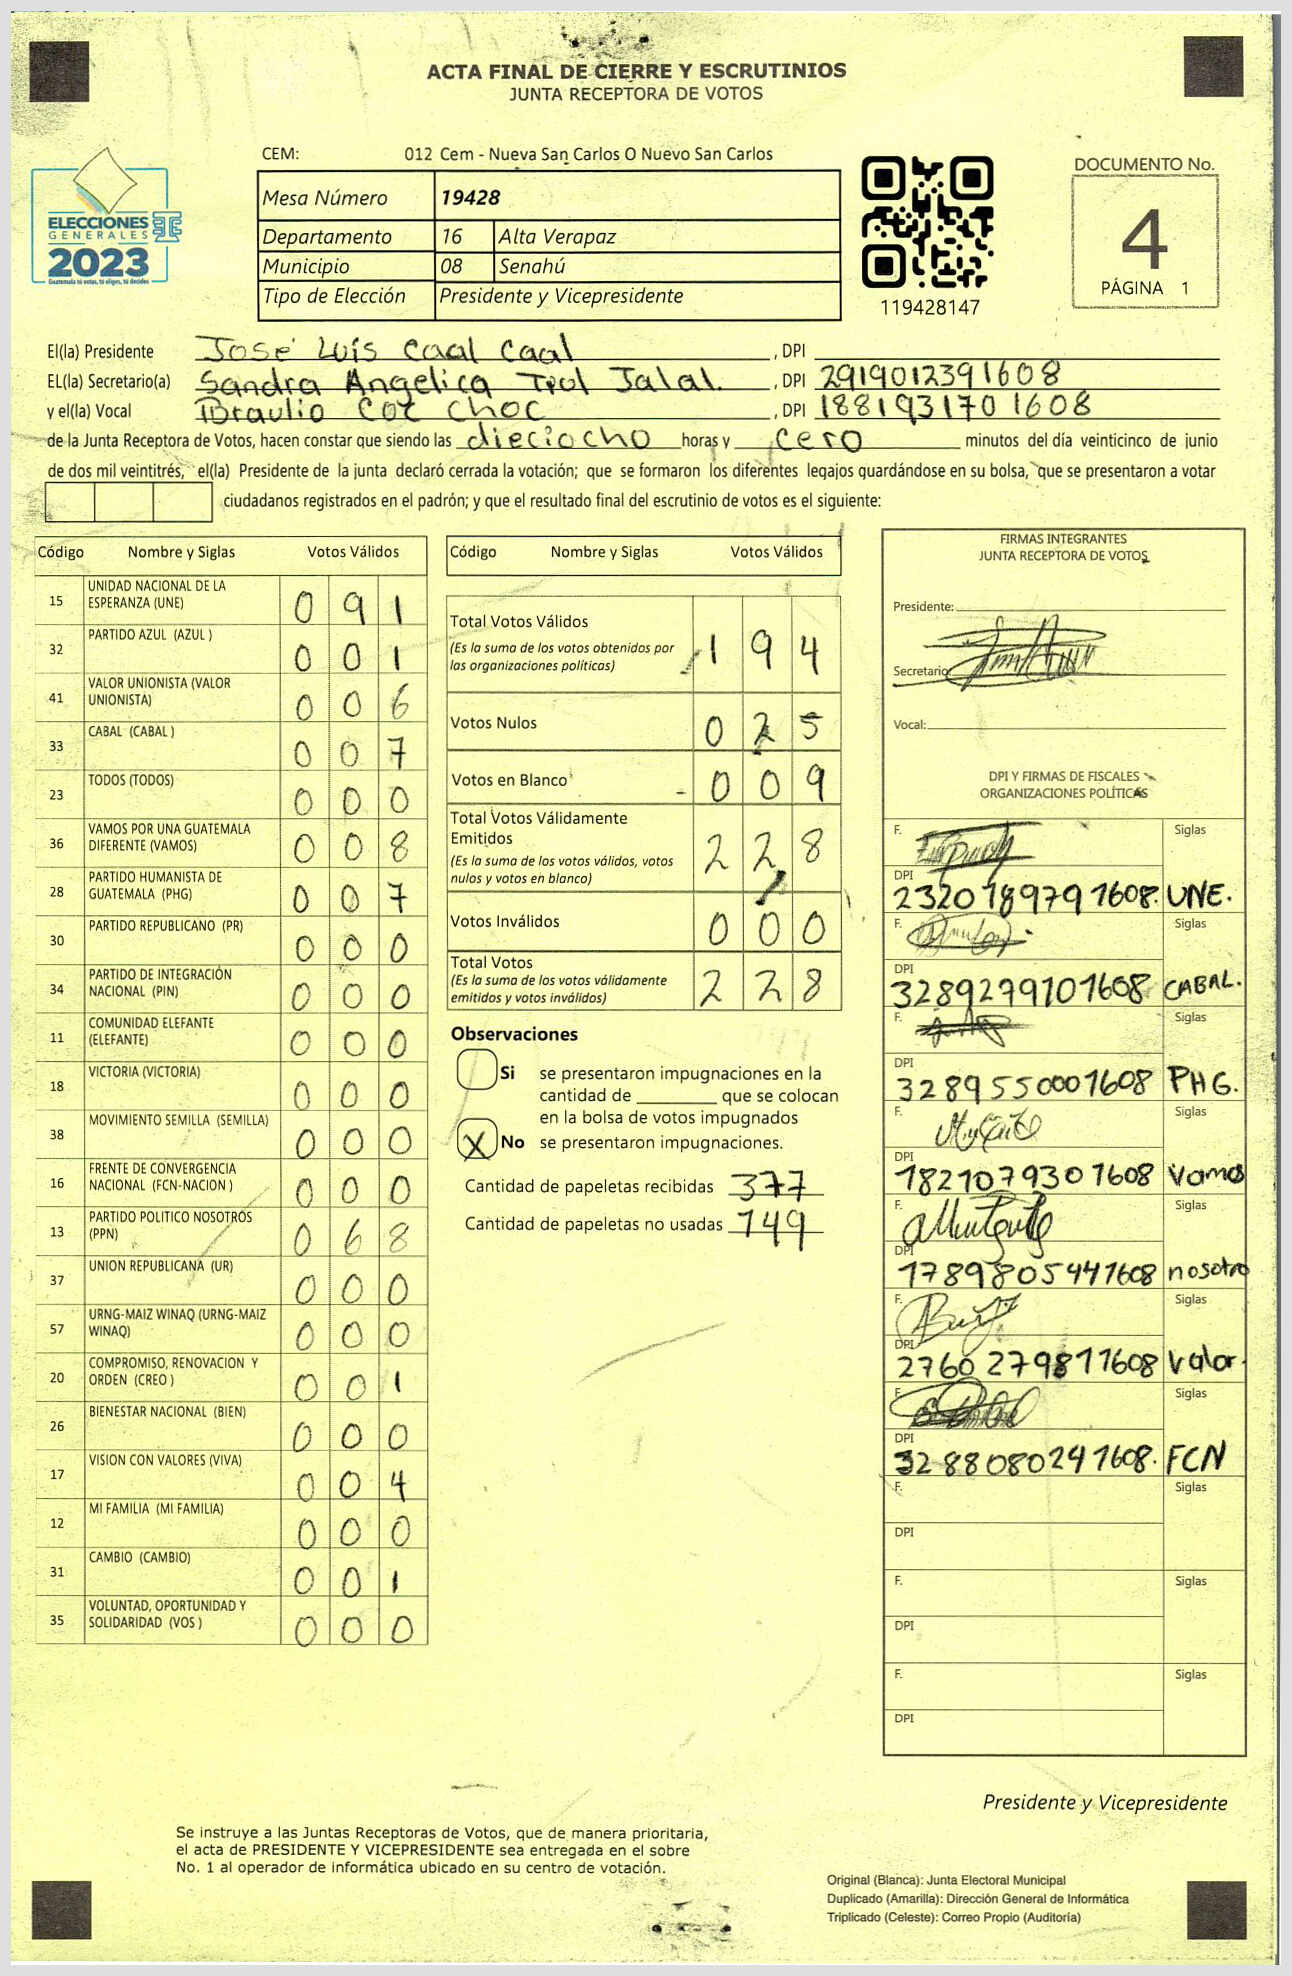 ACTA FINAL DE CIERRE Y ESCRUTINIOS
JUNTA RECEPTORA DE VOTOS
CEM: 012 Cem - Nueva San Carlos O Nuevo San Carlos
ELECCIONES
GENERALES
2023
Guatemala tú votas, tú eliges, tú decides
TE
Mesa Número 19428
Departamento 16 Alta Verapaz
Municipio 08 Senahú
Tipo de Elección Presidente y Vicepresidente
119428147
DOCUMENTO No.
4
PÁGINA 1
El(la) Presidente José Luís Caal Caal , DPI
EL(la) Secretario(a) Sandra Angelica Jalal. , DPI 2919012391608
y el(la) Vocal Braulio Coc Choc , DPI 1881931701608
de la Junta Receptora de Votos, hacen constar que siendo las dieciocho horas y cero minutos del día veinticinco de junio
de dos mil veintitrés, el(la) Presidente de la junta declaró cerrada la votación; que se formaron los diferentes legajos guardándose en su bolsa, que se presentaron a votar
ciudadanos registrados en el padrón; y que el resultado final del escrutinio de votos es el siguiente:
Código Nombre y Siglas Votos Válidos
15 UNIDAD NACIONAL DE LA ESPERANZA (UNE) 0 9 1
32 PARTIDO AZUL (AZUL ) 0 0 1
41 VALOR UNIONISTA (VALOR UNIONISTA) 0 0 6
33 CABAL (CABAL ) 0 0 7
23 TODOS (TODOS) 0 0 0
36 VAMOS POR UNA GUATEMALA DIFERENTE (VAMOS) 0 0 8
28 PARTIDO HUMANISTA DE GUATEMALA (PHG) 0 0 7
30 PARTIDO REPUBLICANO (PR) 0 0 0
34 PARTIDO DE INTEGRACIÓN NACIONAL (PIN) 0 0 0
11 COMUNIDAD ELEFANTE (ELEFANTE) 0 0 0
18 VICTORIA (VICTORIA) 0 0 0
38 MOVIMIENTO SEMILLA (SEMILLA) 0 0 0
16 FRENTE DE CONVERGENCIA NACIONAL (FCN-NACION ) 0 0 0
13 PARTIDO POLITICO NOSOTROS (PPN) 0 6 8
37 UNION REPUBLICANA (UR) 0 0 0
57 URNG-MAIZ WINAQ (URNG-MAIZ WINAQ) 0 0 0
20 COMPROMISO, RENOVACION Y ORDEN (CREO ) 0 0 1
26 BIENESTAR NACIONAL (BIEN) 0 0 0
17 VISION CON VALORES (VIVA) 0 0 4
12 MI FAMILIA (MI FAMILIA) 0 0 0
31 CAMBIO (CAMBIO) 0 0 1
35 VOLUNTAD, OPORTUNIDAD Y SOLIDARIDAD (VOS ) 0 0 0
Código Nombre y Siglas Votos Válidos
Total Votos Válidos 1 9 4
(Es la suma de los votos obtenidos por
las organizaciones políticas)
Votos Nulos 0 2 5
Votos en Blanco 0 0 9
Total Votos Válidamente
Emitidos 2 2 8
(Es la suma de los votos válidos, votos
nulos y votos en blanco)
Votos Inválidos 0 0 0
Total Votos 2 2 8
(Es la suma de los votos válidamente
emitidos y votos inválidos)
Observaciones
Si se presentaron impugnaciones en la
cantidad de ________ que se colocan
en la bolsa de votos impugnados
X No se presentaron impugnaciones.
Cantidad de papeletas recibidas 377
Cantidad de papeletas no usadas 149
FIRMAS INTEGRANTES
JUNTA RECEPTORA DE VOTOS
Presidente:
Secretario
Vocal:
DPI Y FIRMAS DE FISCALES
ORGANIZACIONES POLÍTICAS
F. Siglas
DPI
2320189791608. UNE.
F. Siglas
DPI
3289299101608 CABAL.
F. Siglas
DPI
3289550001608 PHG.
F. Siglas
DPI
1821079301608 Vamos
F. Siglas
DPI
1789805441608 nosotro
F. Siglas
DPI
2760279811608 Valor.
F. Siglas
DPI
3288080241608. FCN
F. Siglas
DPI
F. Siglas
DPI
F. Siglas
DPI
Presidente y Vicepresidente
Se instruye a las Juntas Receptoras de Votos, que de manera prioritaria,
el acta de PRESIDENTE Y VICEPRESIDENTE sea entregada en el sobre
No. 1 al operador de informática ubicado en su centro de votación.
Original (Blanca): Junta Electoral Municipal
Duplicado (Amarilla): Dirección General de Informática
Triplicado (Celeste): Correo Propio (Auditoría)